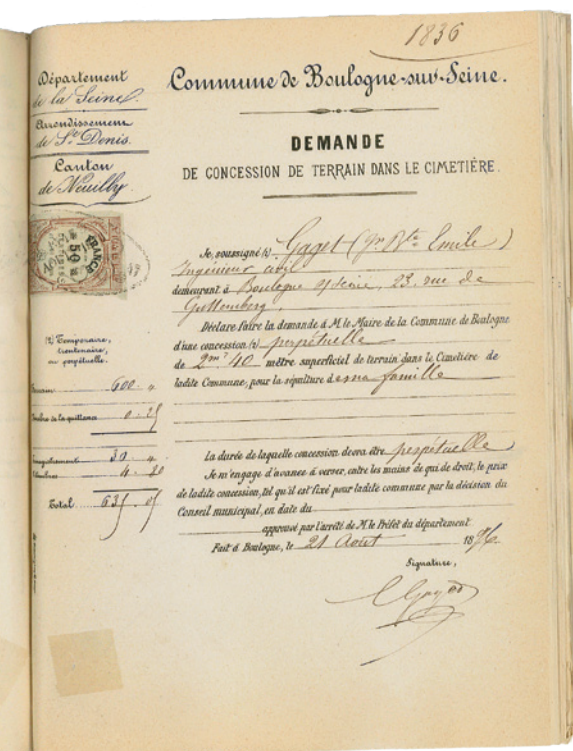 1836
Département
de la Seine.
Arrondissement
de St Denis.
Canton
de Neuilly.
FRANCE
50
Commune de Boulogne-sur-Seine.
DEMANDE
DE CONCESSION DE TERRAIN DANS LE CIMETIÈRE.
Je, soussigné (1) Gaget (Jn Bte Emile)
Ingénieur civil
demeurant à Boulogne s/Seine, 23, rue de
Guttemberg.
Déclare faire la demande à M. le Maire de la Commune de Boulogne
d'une concession (2) perpétuelle
de 2m 40 mètre superficiel de terrain dans le Cimetière de
ladite Commune, pour la sépulture de ma famille
La durée de laquelle concession devra être perpétuelle
Je m'engage d'avance à verser, entre les mains de qui de droit, le prix
de ladite concession, tel qu'il est fixé pour ladite commune par la décision du
Conseil municipal, en date du
approuvé par l'arrêté de M. le Préfet du département
Fait à Boulogne, le 21 Août 1896
Signature,
(2) Temporaire,
trentenaire,
ou perpétuelle.
Terrain 600 "
Timbre de la quittance 0.25
Enregistrement 30 "
Timbres 4.80
Total 635.05